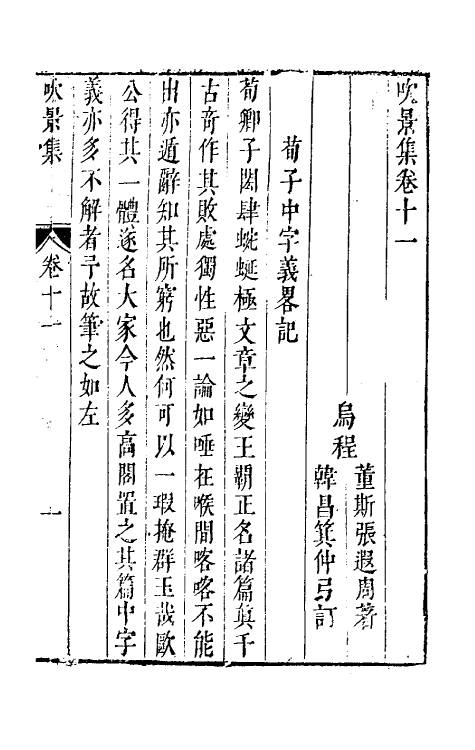 吹景集卷十一
烏程
董斯張遐周著
韓昌箕仲弓訂
荀子中字義畧記
荀卿子閎肆蜿蜒極文章之變王覇正名諸篇眞千
古奇作其敗處獨性惡一論如唾在喉間喀喀不能
出亦遁辭知其所窮也然何可以一瑕掩群玉哉歐
公得其一體遂名大家今人多高閣置之其篇中字
義亦多不解者予故筆之如左
吹景集
卷十一
一